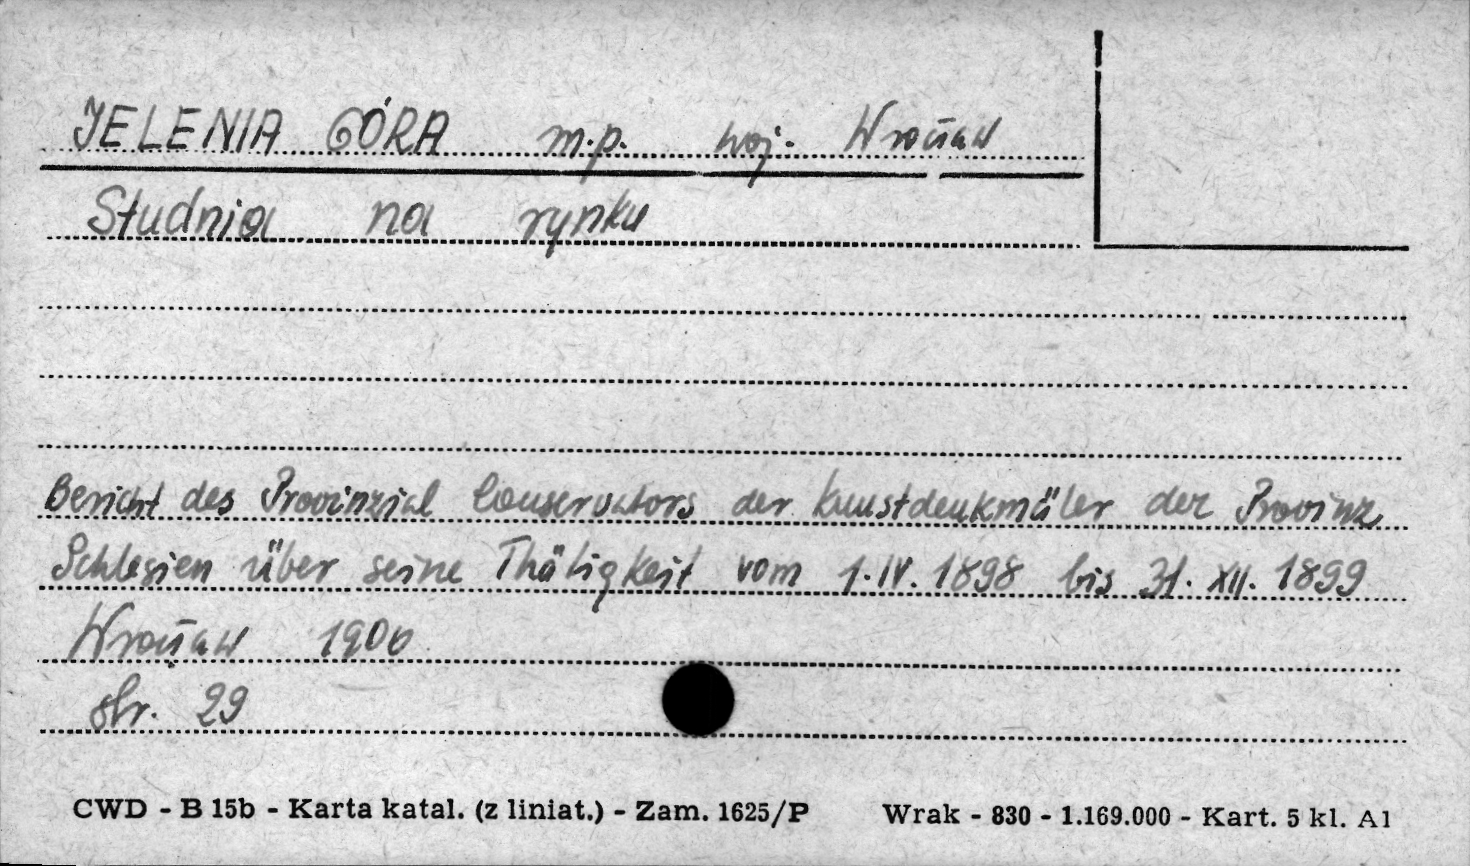 JELENIA GÓRA m.p. woj. Wrocław
Studnia na rynku
Bericht des Provinzial Conservators der Kunstdenkmäler der Provinz
Schlesien über seine Thätigkeit vom 1.IV.1898 bis 31.XII.1899
Wrocław 1900
str. 29
CWD - B 15b - Karta katal. (z liniat.) - Zam. 1625/P Wrak - 830 - 1.169.000 - Kart. 5 kl. A1